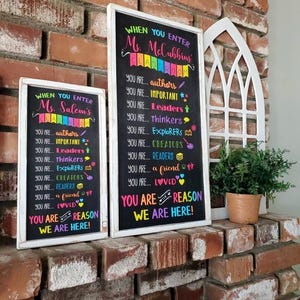 WHEN YOU ENTER
Ms. Salem's
CLASSROOM
YOU ARE... authors
YOU ARE... IMPORTANT
YOU ARE... Leaders
YOU ARE... Thinkers
YOU ARE... EXPLORERS
YOU ARE... CREATORS
YOU ARE... READERS
YOU ARE... a friend
YOU ARE... LOVED
YOU ARE THE REASON
WE ARE HERE!
WHEN YOU ENTER
Ms. McCubbins'
CLASSROOM
YOU ARE... authors
YOU ARE... IMPORTANT
YOU ARE... Leaders
YOU ARE... Thinkers
YOU ARE... EXPLORERS
YOU ARE... CREATORS
YOU ARE... READERS
YOU ARE... a friend
YOU ARE... LOVED
YOU ARE THE REASON
WE ARE HERE!